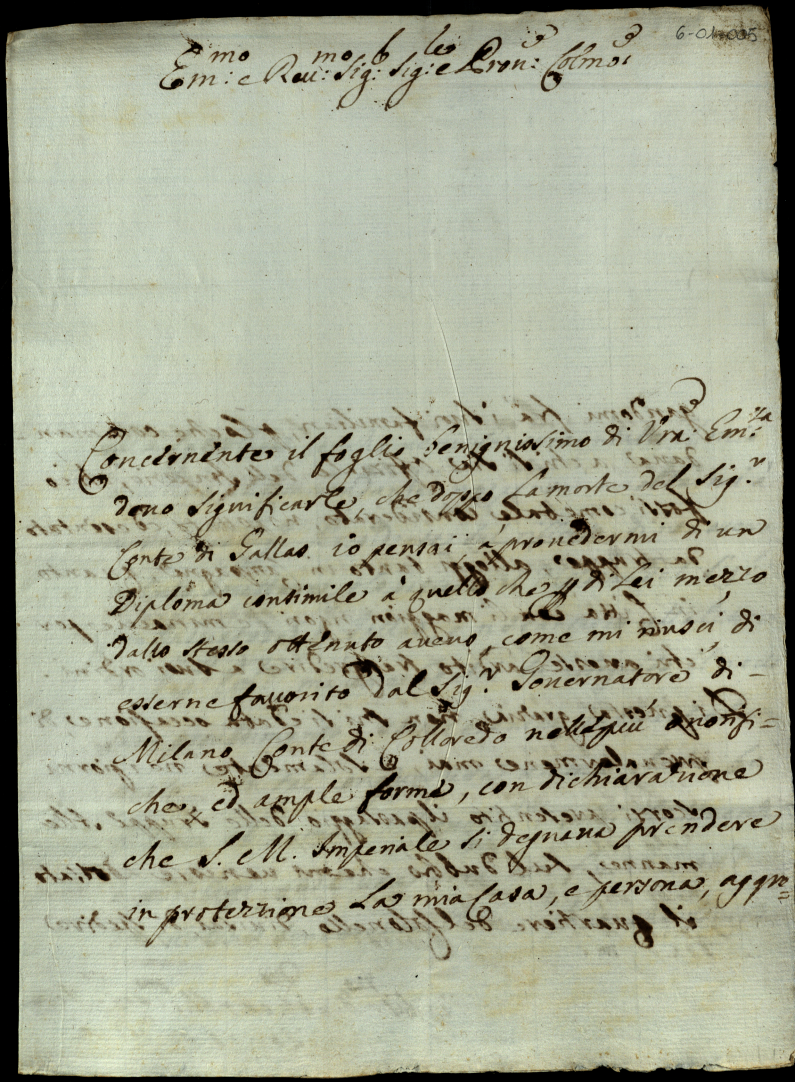 6-01-005
Em:mo e Reu:mo Sig: Sig:le e Pron:e Colmo:
Concernente il foglio benignissimo di Vra Em:za
deuo significarle, che doppo La morte del Sig.r
Conte di Gallas io pensai, a prouedermi di un
Diploma consimile à quello che p di Lei mezzo
dallo stesso ottenuto aueuo, come mi riusci, di
esserne fauorito dal Sig.r Gouernatore di -
Milano Conte di Colloredo nelle più onorifi=
che, ed ample forme, con dichiarazione
che S. M. Imperiale si degnaua prendere
in protezzione La mia Casa, e persona, aggre=